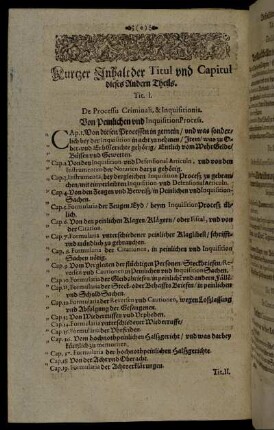 Kurtzer Inhalt der Titul vnd Capitul
dieses Andern Theils.
Tit. I.
De Processu Criminali, & Inquisitionis.
Von Peinlichen vnd Inquisition Proceß.
CAp. 1. Von diesen Processen in gemein / und was sonder-
lich bey der Inquisition in acht zu nehmen /
Büssen und Gewetten.
Cap. 2. Von den Inquisition und Defensional Articuln, und von den
Instrumenten der Notarien darzu gehörig.
Cap. 3. Instrumenta bey dergleichen Inquisition Proceß zu gebrau-
chen / mit einverleibten Inquisition und Defensional Articuln.
Cap. 4. Von den Zeugen und Beweiß / in Peinlichen und Inquisition
Sachen.
Cap. 5. Formularia der Zeugen Eyd / beym Inquisition Proceß üb-
lich.
Cap. 6. Von den peinlichen Klagen / Klägern / oder Fiscal, und von
der Citation.
Cap. 7. Formularia unterschiedener peinlicher Klaglibell / schrifft-
und mündlich zu gebrauchen.
Cap. 8. Formularia der Citationen, in peinlichen und Inquisition
Sachen nötig.
Cap. 9. Von Vergleiten der flüchtigen Personen / Steckbrieffen / Re-
versen und Cautionen in Peinlichen und Inquisition Sachen.
Cap. 10. Formularia der Gleidsbrieffen in peinlich und andern Fällen.
Cap. 11. Formularia der Steck- oder Behaffts Brieffen / in peinlichen
und Schuld Sachen.
Cap. 12. Formularia der Reversen und Cautionen, wegen Loßlassung
und Abfolgung der Gefangenen.
Cap. 13. Von Wiederruffen und Urpheden.
Cap. 14. Formularia unterschiedener Wiederruffe /
Cap. 15. Formularia der Urpheden
Cap. 16. Vom hochnothpeinlichen Halßgericht / und was darbey
Cap. 17. Formularia der hochnothpeinlichen Halßgerichte.
Cap. 18. Von der Acht und Ober acht.
Cap. 19. Formularia der Achtserklärungen.
Tit. II.